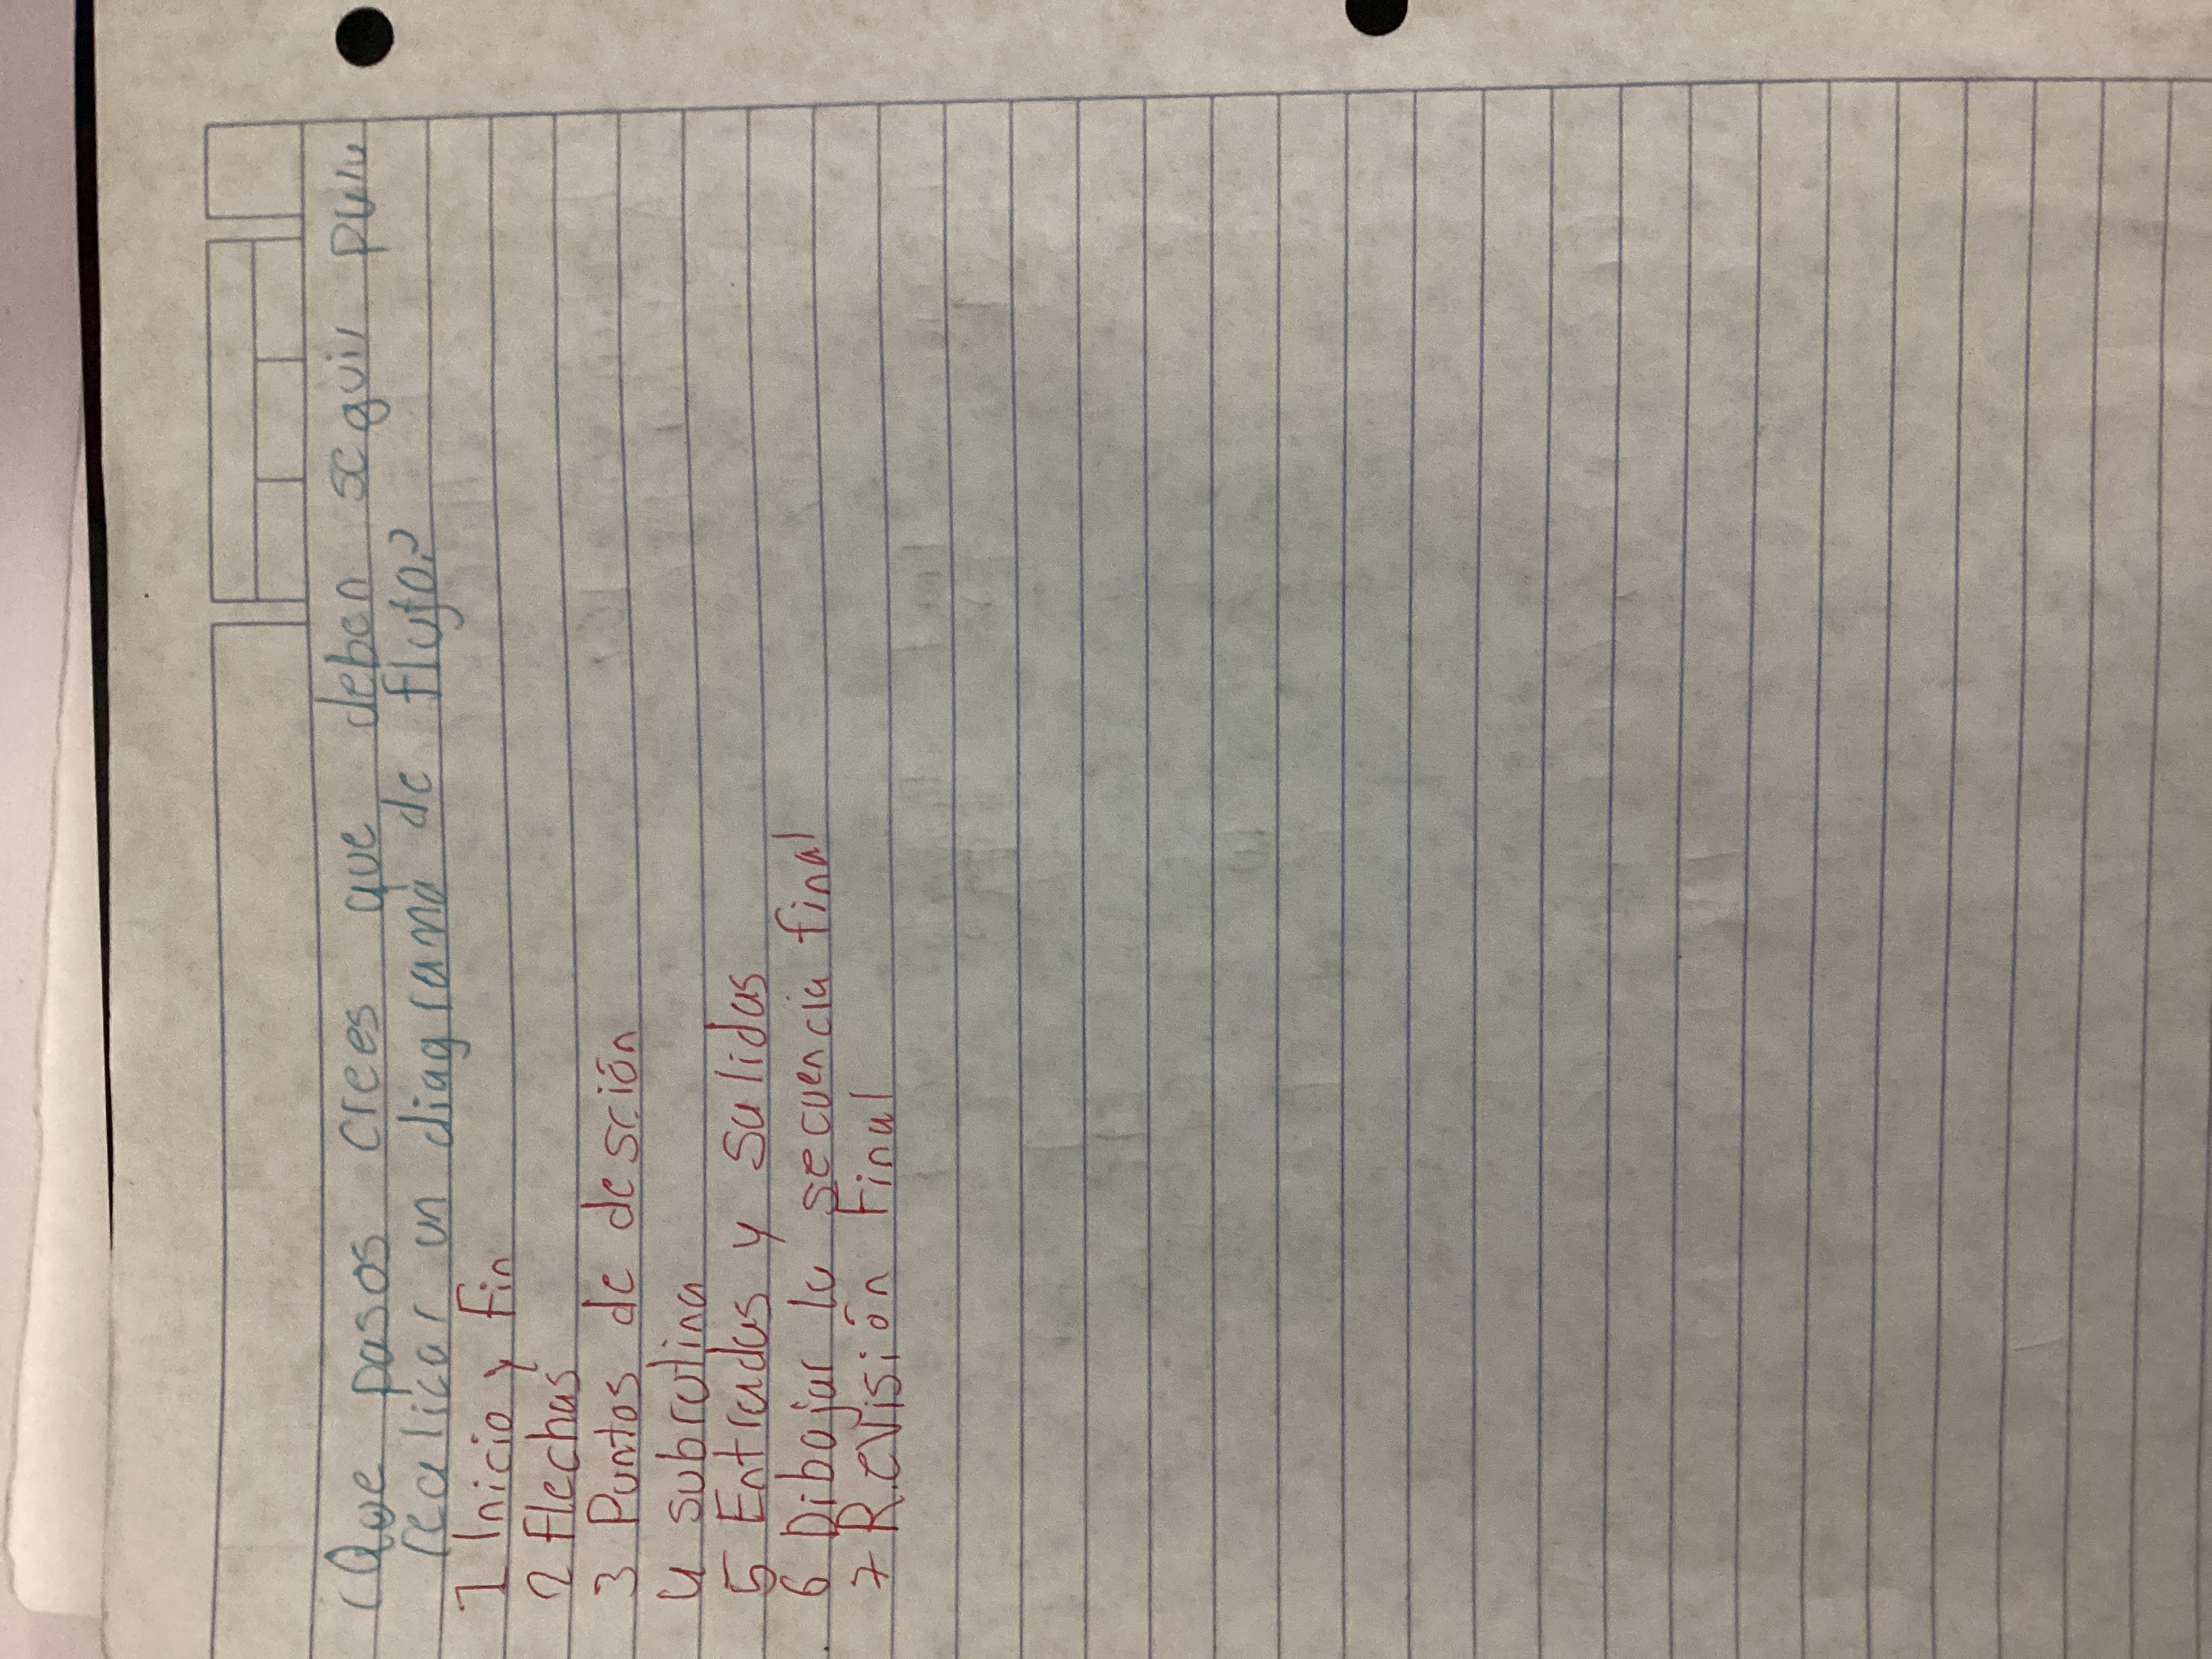 ¿Que pasos crees que deben seguir para
realicar un diagrama de flujo?
1 Inicio y fin
2 flechas
3 Puntos de desción
4 subrutina
5 Entradas y salidas
6 Dibajar la secuencia final
7 Revisión Final